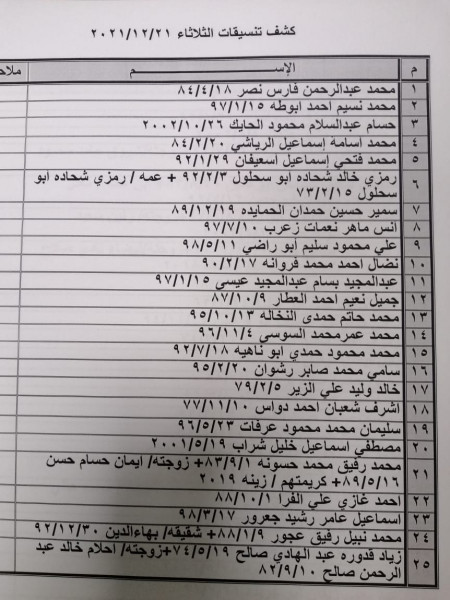 كشف تنسيقات الثلاثاء ٢٠٢١/١٢/٢١
م الإســـــــــم ملاح
١ محمد عبدالرحمن فارس نصر ٨٤/٤/١٨
٢ محمد نسيم احمد ابوطه ٩٧/١/١٥
٣ حسام عبدالسلام محمود الحايك ٢٠٠٢/١٠/٢٦
٤ محمد اسامه إسماعيل الرياشي ٨٤/٢/٢٠
٥ محمد فتحي إسماعيل اسعيفان ٩٢/١/٢٩
٦ رمزي خالد شحاده ابو سحلول ٩٢/٢/٣ + عمه / رمزي شحاده ابو
سحلول ٧٣/٢/١٥
٧ سمير حسين حمدان الحمايده ٨٩/١٢/١٩
٨ انس ماهر نعمات زعرب ٩٧/٧/١٠
٩ علي محمود سليم ابو راضي ٩٨/٥/١١
١٠ نضال احمد محمد فروانه ٩٠/٢/١٧
١١ عبدالمجيد بسام عبدالمجيد عيسى ٩٧/١/١٥
١٢ جميل نعيم احمد العطار ٨٧/١٠/٩
١٣ محمد حاتم حمدى النخاله ٩٥/١٠/١٣
١٤ محمد عمرمحمد السوسي ٩٦/١١/٤
١٥ محمد محمود حمدي ابو ناهيه ٩٢/٧/١٨
١٦ سامي محمد صابر رشوان ٩٥/٢/٢٠
١٧ خالد وليد علي الزير ٧٩/٢/٥
١٨ اشرف شعبان احمد دواس ٧٧/١١/١٠
١٩ سليمان محمد محمود عرفات ٩٦/٥/٢٣
٢٠ مصطفي اسماعيل خليل شراب ٢٠٠١/٥/١٩
٢١ محمد رفيق محمد حسونه ٨٣/٩/١+ زوجته/ ايمان حسام حسن
٨٩/٥/١٦+ كريمتهم / زينه ٢٠١٩
٢٢ احمد غازي علي الفرا ٨٨/١٠/١
٢٣ اسماعيل عامر رشيد جعرور ٩٨/٣/١٧
٢٤ محمد نبيل رفيق عجور ٨٨/١/٩+ شقيقه/ بهاءالدين ٩٢/١٢/٣٠
٢٥ زياد قدوره عبد الهادي صالح ٧٤/٥/١٩+زوجته/ احلام خالد عبد
الرحمن صالح ٨٢/٩/١٠